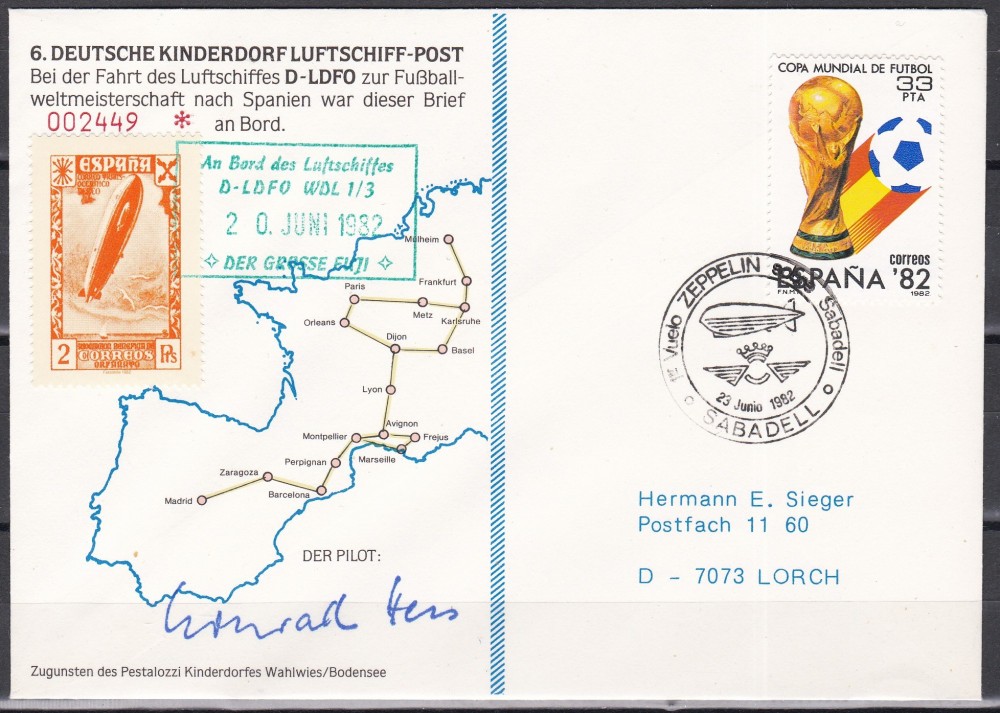 6. DEUTSCHE KINDERDORF LUFTSCHIFF-POST
Bei der Fahrt des Luftschiffes D-LDFO zur Fußball-
weltmeisterschaft nach Spanien war dieser Brief
002449 * an Bord.
ESPAÑA
2 CORREOS Pts
HUERFANATO
An Bord des Luftschiffes
D-LDFO WDL 1/3
20. JUNI 1982
DER GROSSE FUJI
Mülheim
Frankfurt
Paris
Metz
Karlsruhe
Orleans
Dijon
Basel
Lyon
Avignon
Montpellier
Frejus
Marseille
Perpignan
Zaragoza
Barcelona
Madrid
DER PILOT:
Konrad Hess
Zugunsten des Pestalozzi Kinderdorfes Wahlwies/Bodensee
COPA MUNDIAL DE FUTBOL
33
PTA
correos
ESPAÑA '82
F.N.M.T. 1982
Vuelo ZEPPELIN sobre Sabadell
23 Junio 1982
SABADELL
Hermann E. Sieger
Postfach 11 60
D - 7073 LORCH